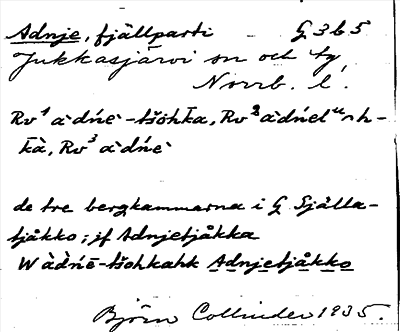 Adnje, fjällparti G 3 b 5
Jukkasjärvi sn och tg
Norrb. l.
Rv¹ a`dńe`-tšohka, Rv² a`dńet
kà, Rv³ a`dńe`
de tre bergkammarna i G Själla-
tjåkko; jf Adnjetjåkka
W àdńē-tšohkahk Adnjetjåkko
Björn Collinder 1935.